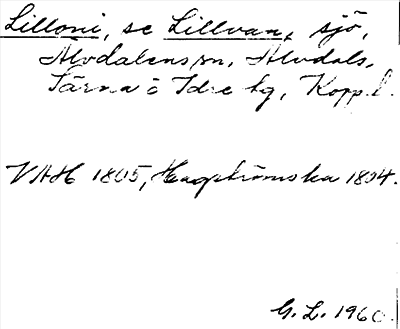 Lilloni, se Lillvan, sjö,
Älvdalens sn, Älvdals,
Särna o Idre tg, Kopp. l.
VAH 1805, Hagströmska 1804.
G. L. 1960.